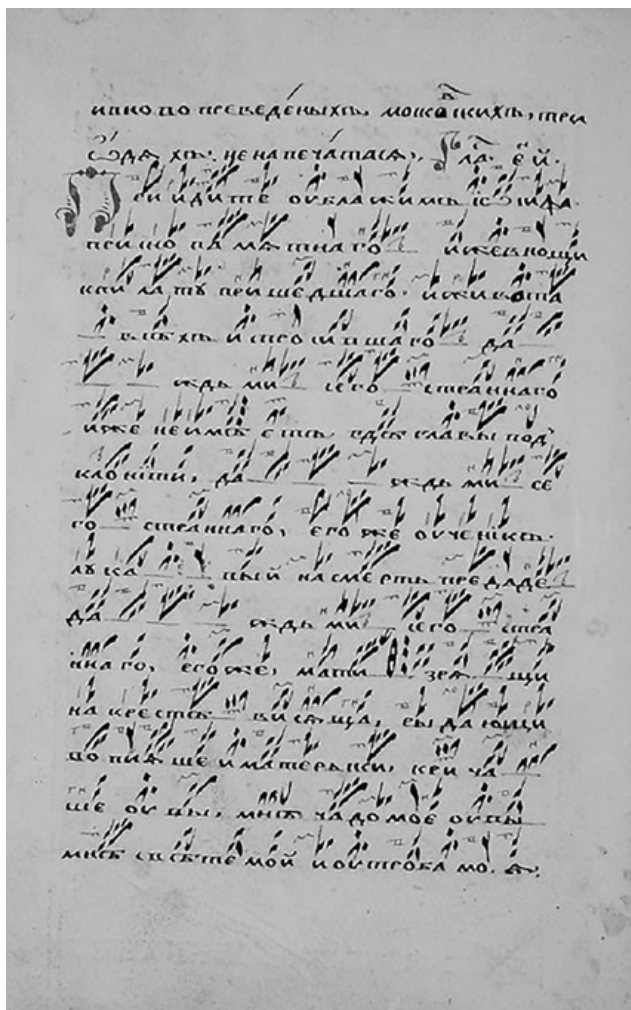 ивно во преведе́ныхъ, моско́вскихъ, трі
ѻ́дѧхъ. не напеча́тасѧ, Гла́. є҃ й.
Прїидите ѹблажимъ іѡсифа
присно памѧтнаго иже в нощи
к пилату пришедшаго. и живота
всѣхъ испросившаго да
ждь ми сего страннаго
иже не имѣетъ гдѣ главы под
клонити, да ждь ми се
го страннаго, егоже ѹченикъ
лука вый на смерть предаде
да ждь ми сего стра
ннаго, егоже, мати зрѧ щи
на крестѣ висѧща, рыдающи
вопиѧше и матерьски, крича
ше ѹвы, мнѣ чадо мое ѹвы
мнѣ свѣте мой и ѹтроба моѧ.